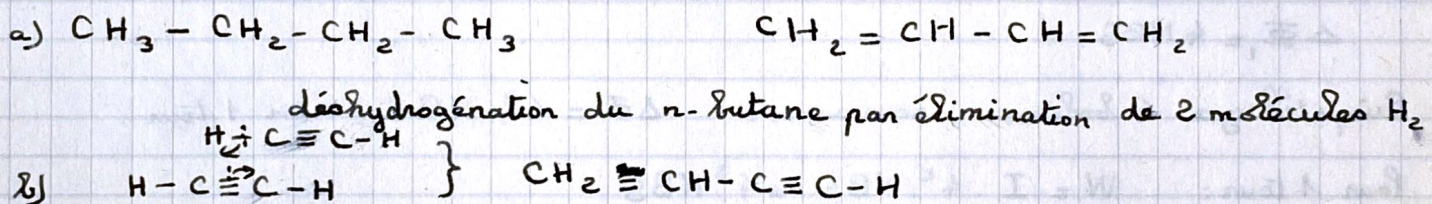 a) CH₃ - CH₂ - CH₂ - CH₃ CH₂ = CH - CH = CH₂
déshydrogénation du n-butane par élimination de 2 molécules H₂
H ÷ C ≡ C - H
b) H - C ≡ C - H } CH₂ = CH - C ≡ C - H